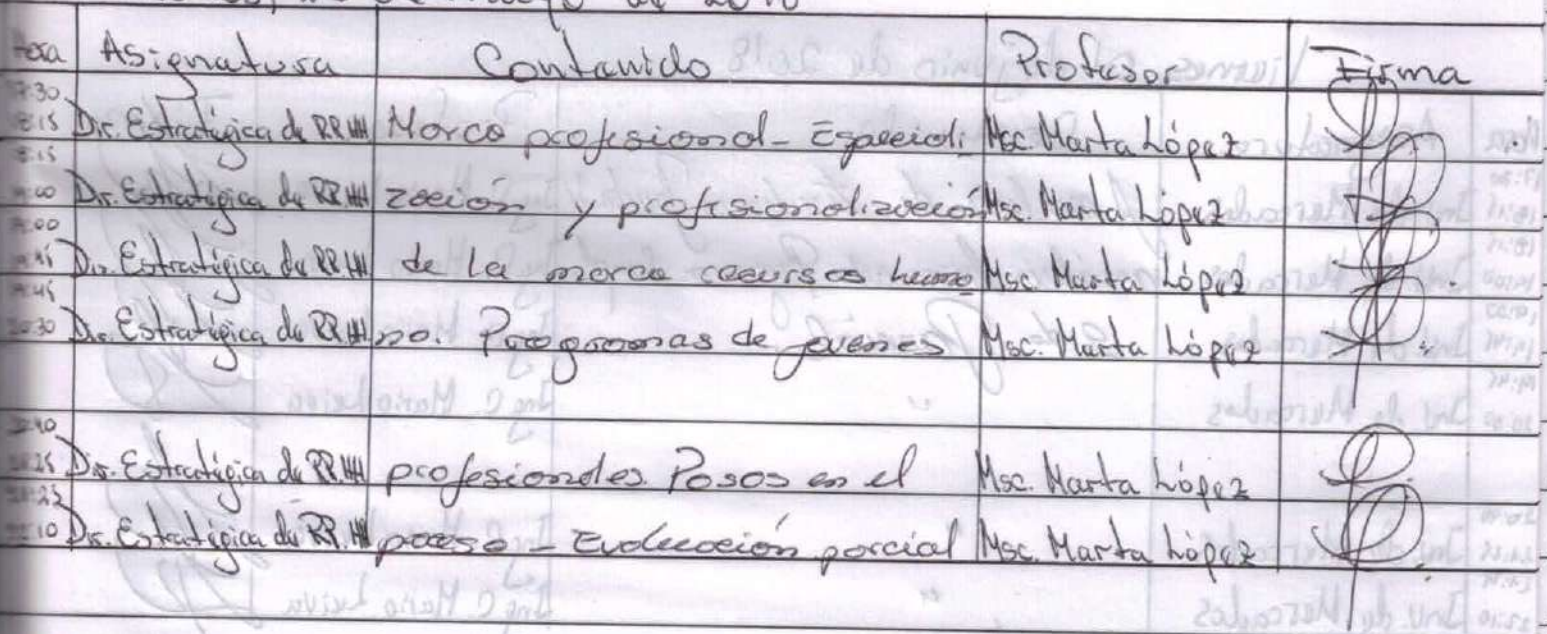 de 2018
Hora Asignatura Contenido Profesor Firma
17:30
18:15 Dir. Estratégica de RR.HH Marca profesional - Especiali Msc. Marta López
18:15
19:00 Dir. Estratégica de RR.HH zación y profesionalización Msc. Marta López
19:00
19:45 Dir. Estratégica de RR.HH de la marca recursos huma Msc. Marta López
19:45
20:30 Dir. Estratégica de RR.HH no. Programas de jovenes Msc. Marta López
20:40
21:25 Dir. Estratégica de RR.HH profesionales. Pasos en el Msc. Marta López
21:25
22:10 Dir. Estratégica de RR.HH - Evaluación parcial Msc. Marta López